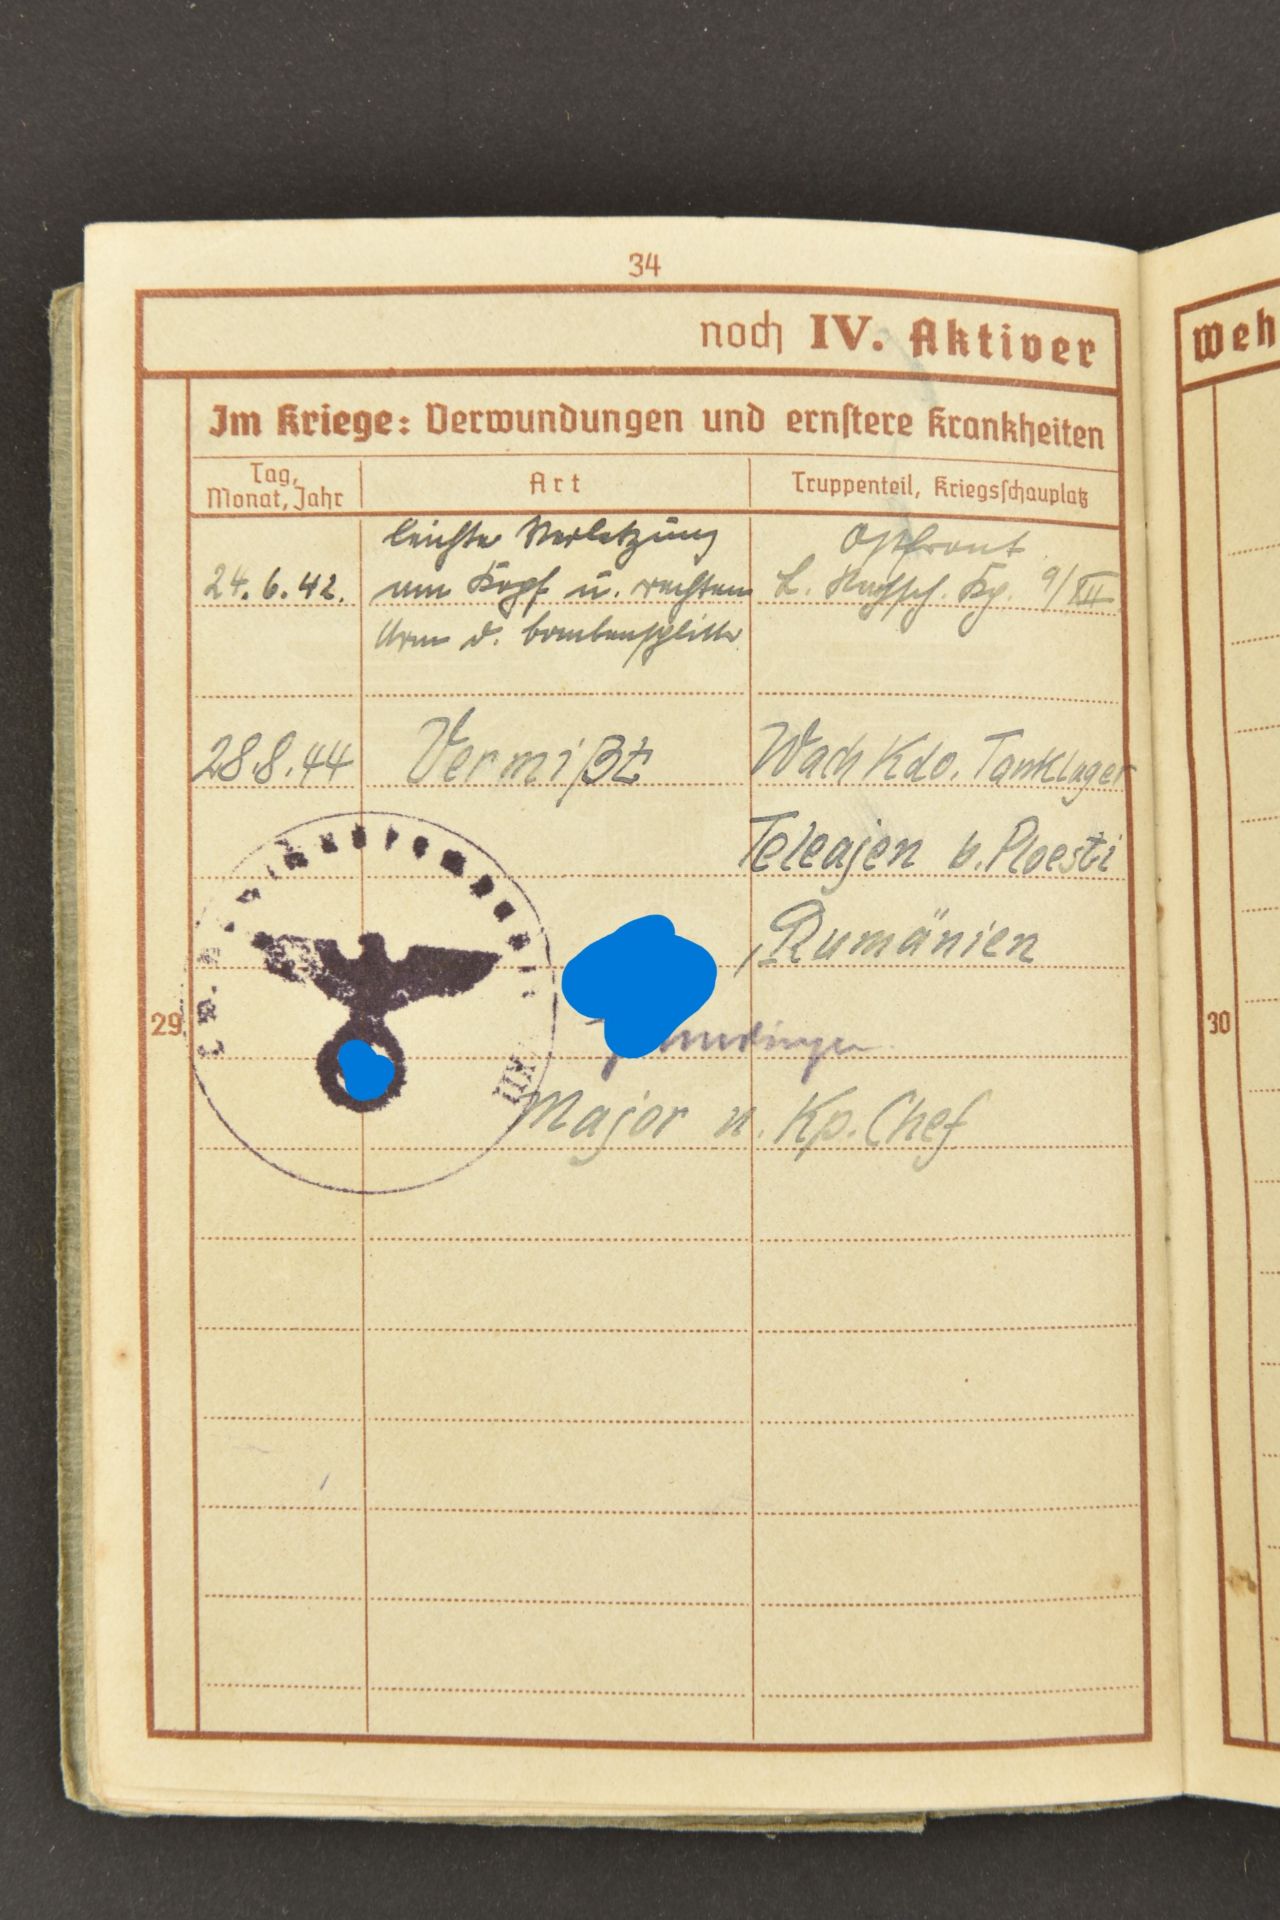 34
noch IV. Aktiver
Weh
Im Kriege: Verwundungen und ernstere Krankheiten
Tag, Monat, Jahr
Art
Truppenteil, Kriegsschauplatz
leichte Verletzung
Ostfront
24. 6. 42.
am Kopf u. rechten
L. Nachsch. Kp. 9/XII
Arm d. Bombensplitter
28.8.44
Vermißt
Wach Kdo. Tanklager
Teleajen b. Ploesti
, Rumänien
29
30
XII
Major u. Kp. Chef